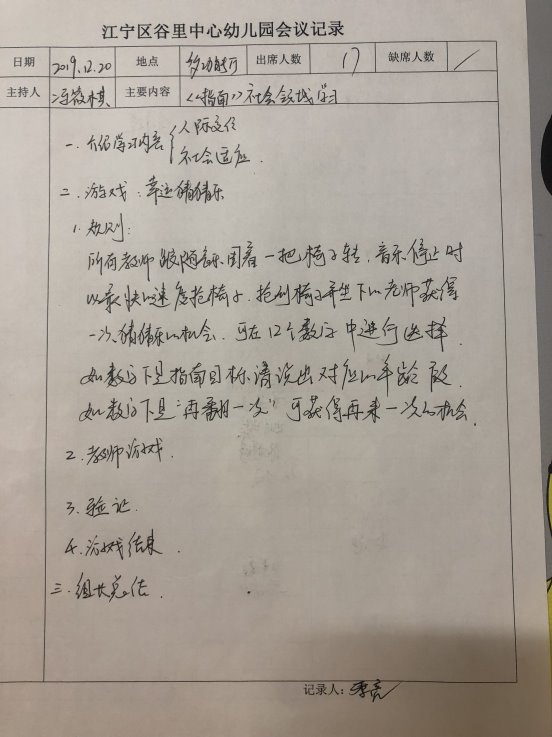 江宁区谷里中心幼儿园会议记录
日期 2019.12.20 地点 多功能厅 出席人数 17 缺席人数 /
主持人 主要内容 《指南》社会领域学习
一. 介绍学习内容 { 人际交往
社会适应.
二. 游戏: 幸运猜猜乐
1. 规则:
所有教师跟随音乐围着一把椅子转, 音乐停止时
以最快的速度抢椅子, 抢到椅子并坐下的老师获得
一次猜猜乐的机会. 可在12个数字中进行选择.
如数字下是指南目标, 请说出对应的年龄段.
如数字下是“再翻一次”可获得再来一次的机会.
2. 教师游戏.
3. 验证.
4. 游戏结束.
三. 组长总结.
记录人: